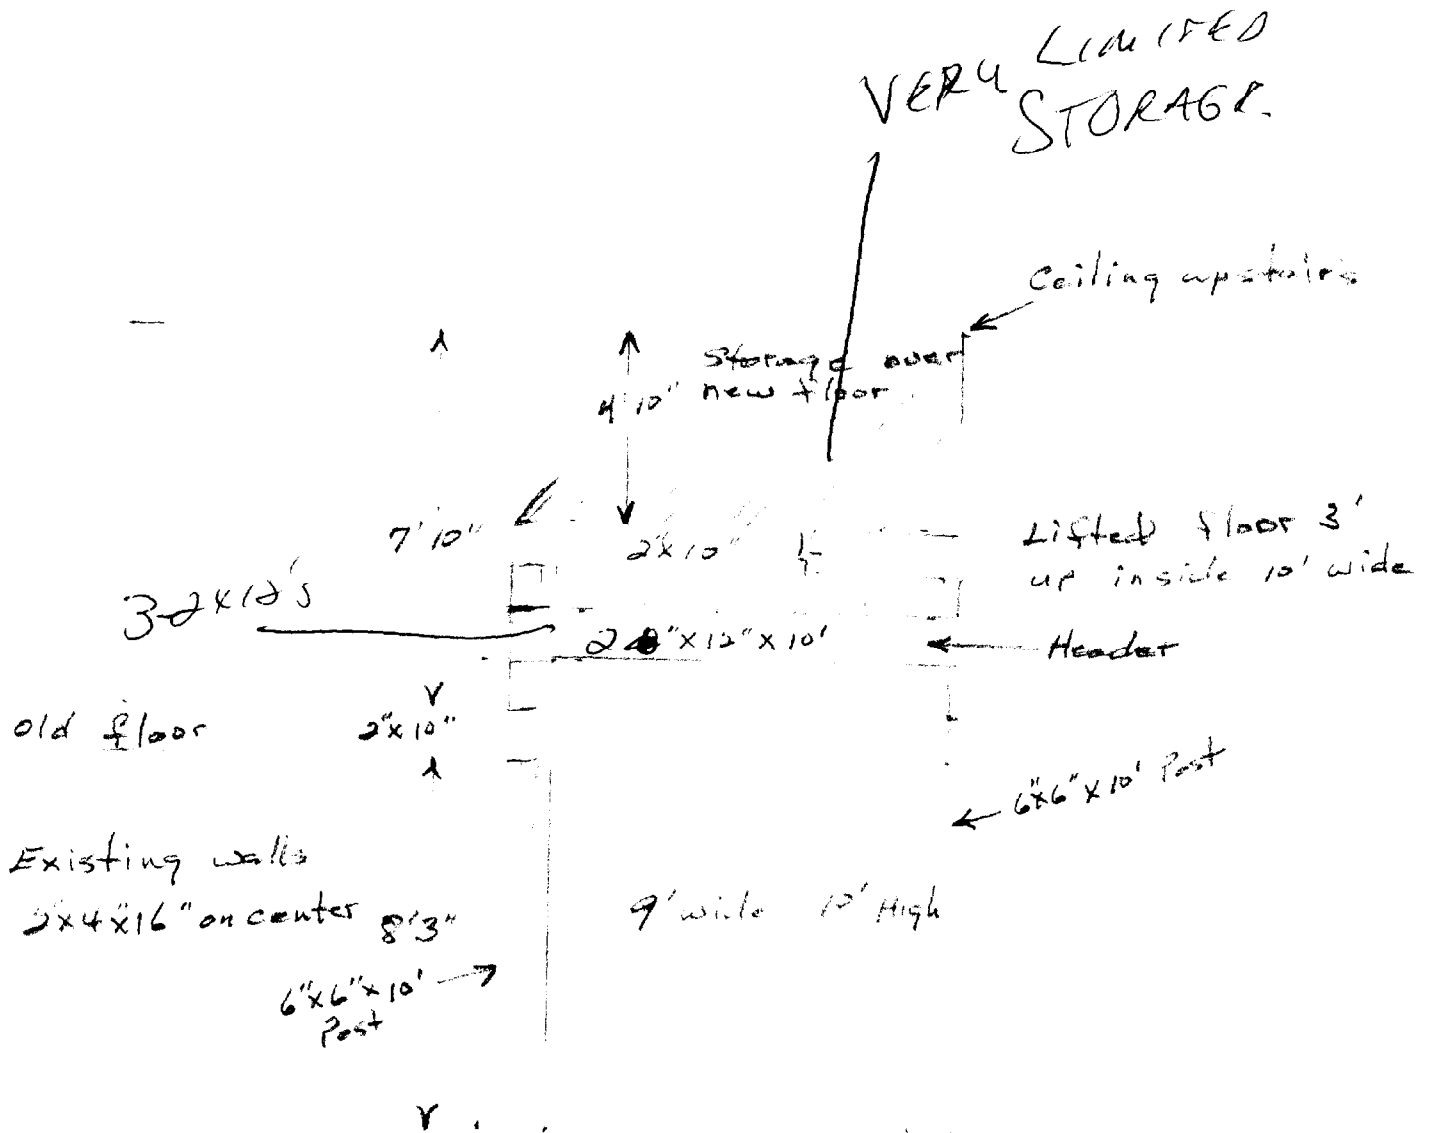 VERY LIMITED
STORAGE.
Ceiling upstairs
Storage over
new floor
4'10"
7'10"
2"x10"
Lifted floor 3'
up inside 10' wide
3-2x12's
2"x12"x10'
Header
Old floor
2"x10"
6"x6"x10' Post
Existing walls
2x4"x16" on center
8'3"
9' wide 10' High
6"x6"x10'
Post